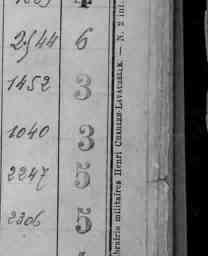 2544 6
1452 3
1040 3
2247 5
2306 5
librairie militaires Henri CHARLES-LAVAUZELLE. — N. 2 int.